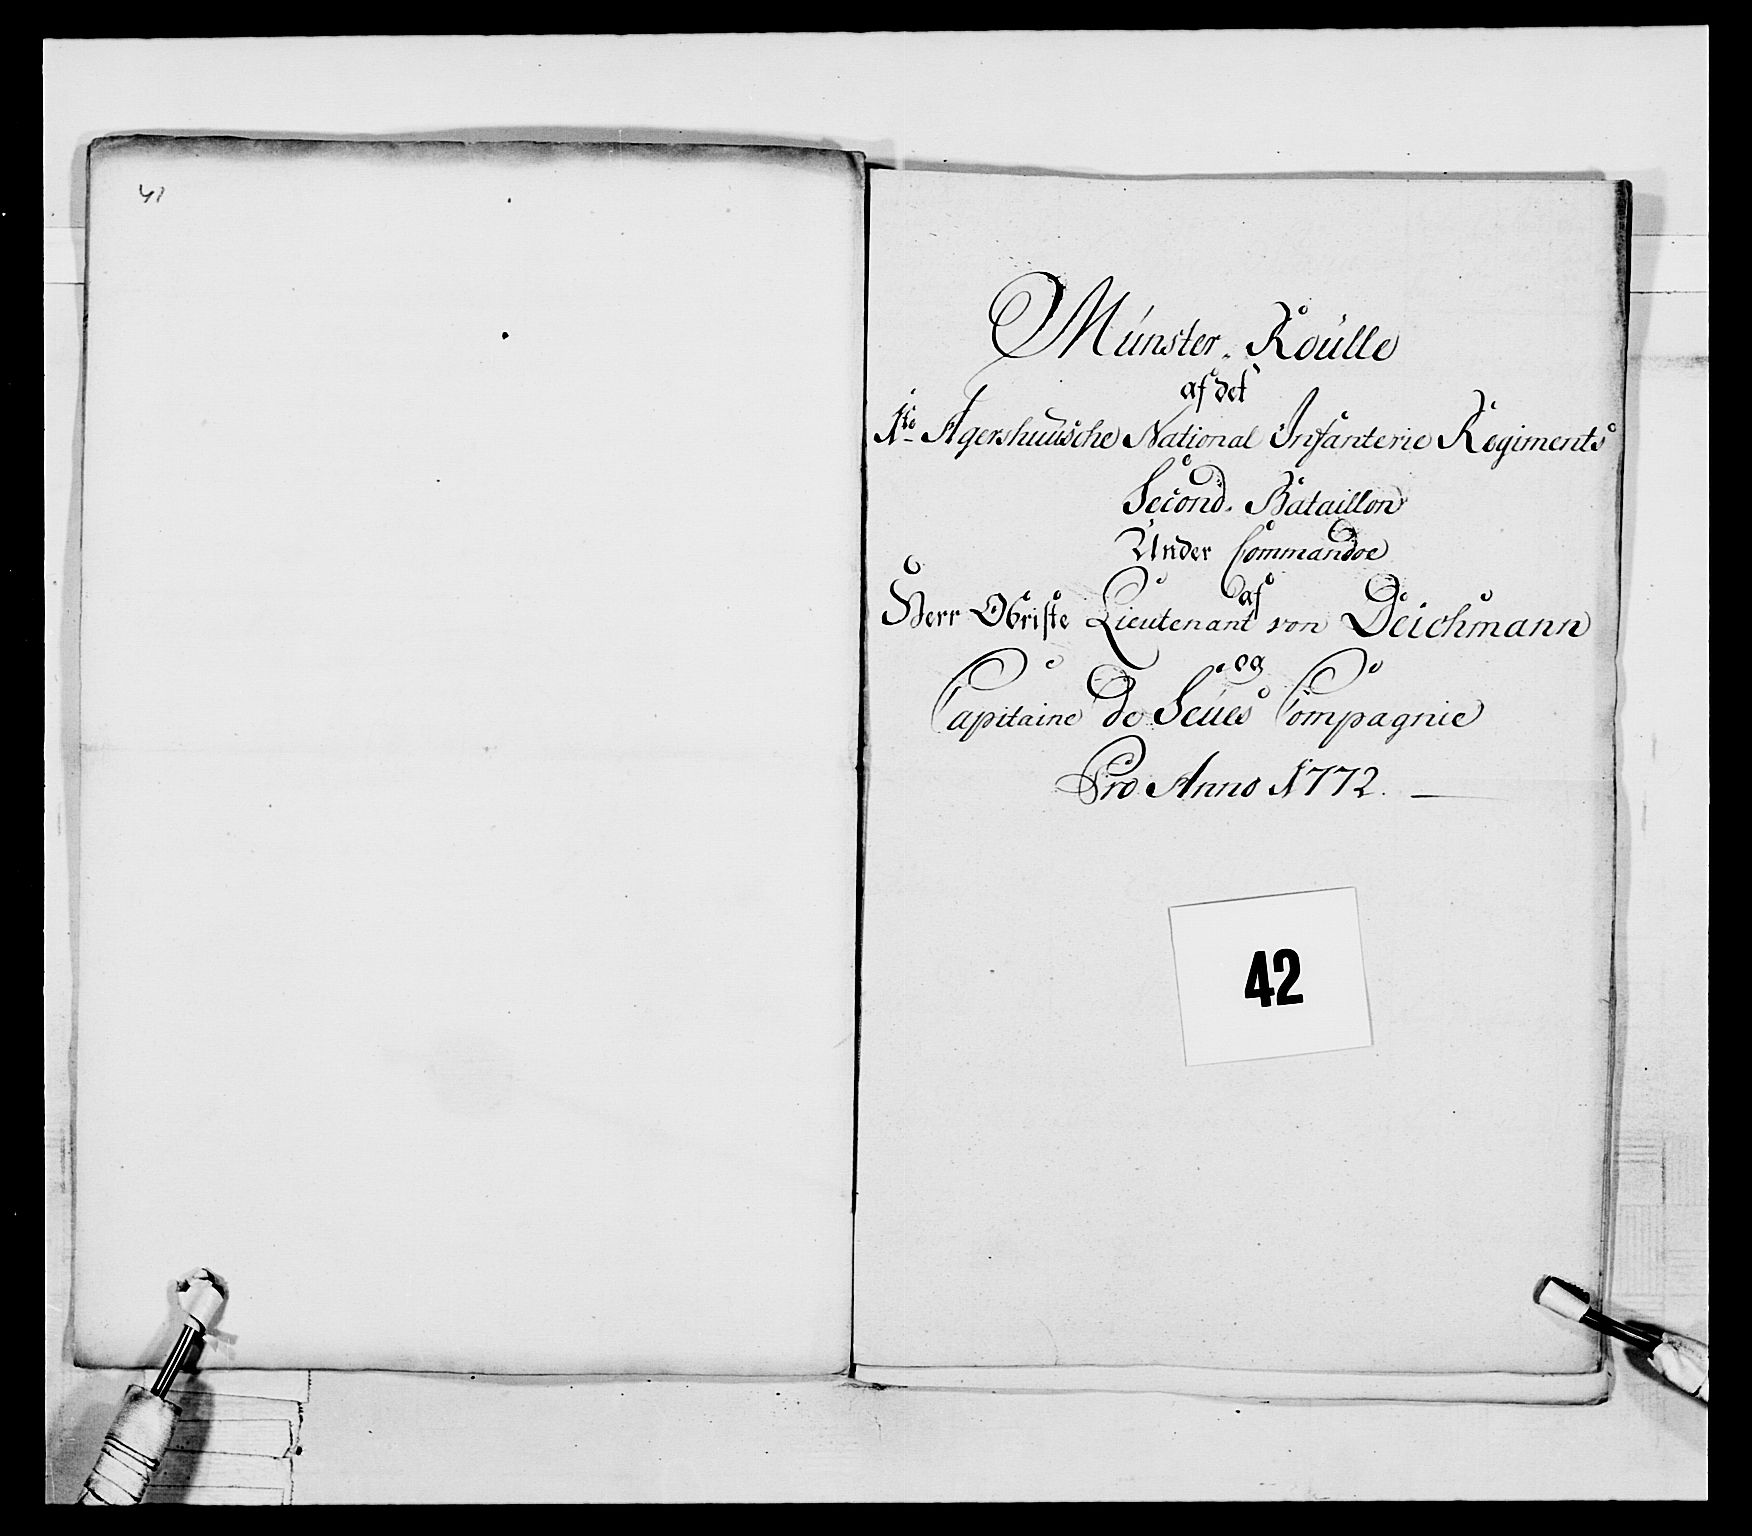 41
Münster-Roülle
af det
1ste Agershuüsche National Infanterie Regiments
Second. Bataillon
Under Commandoe
af
Herr Obriste Lieutenant von Deichmann
og
Capitaine de Seües Compagnie
Pro Anno 1772.
42